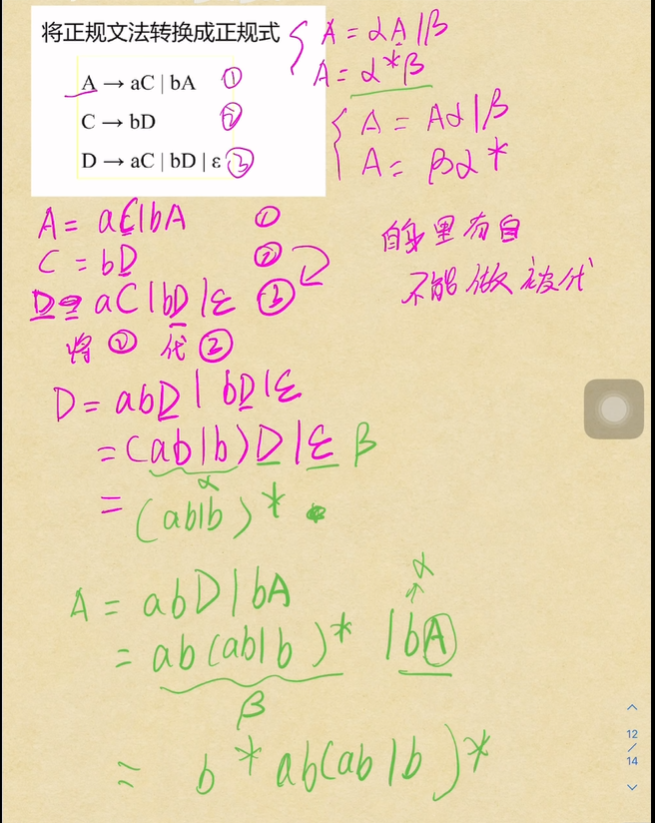 将正规文法转换成正规式
A → aC | bA ①
C → bD ②
D → aC | bD | ε ③
A = αA|β
A = α*β
A = Aα|β
A = βα*
A = aC|bA ①
C = bD ②
D = aC|bD|ε ③
自身里有自
不能做被代
将②代②
D = abD|bD|ε
= (ab|b)D|ε β
α
= (ab|b)*
A = abD|bA
α
= ab(ab|b)* |bA
β
= b*ab(ab|b)*
12
/
14